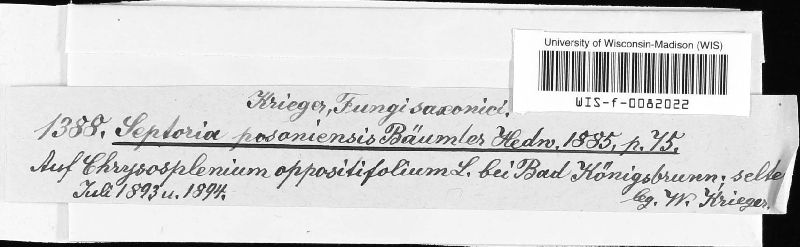 University of Wisconsin-Madison (WIS)
WIS-f-0082022
Krieger, Fungi saxonici.
1388. Septoria posoniensis Bäumler Hedw. 1885, p. 75.
Auf Chrysosplenium oppositifolium L. bei Bad Königsbrunn; selte
Juli 1893 u. 1894. leg. W. Krieger.